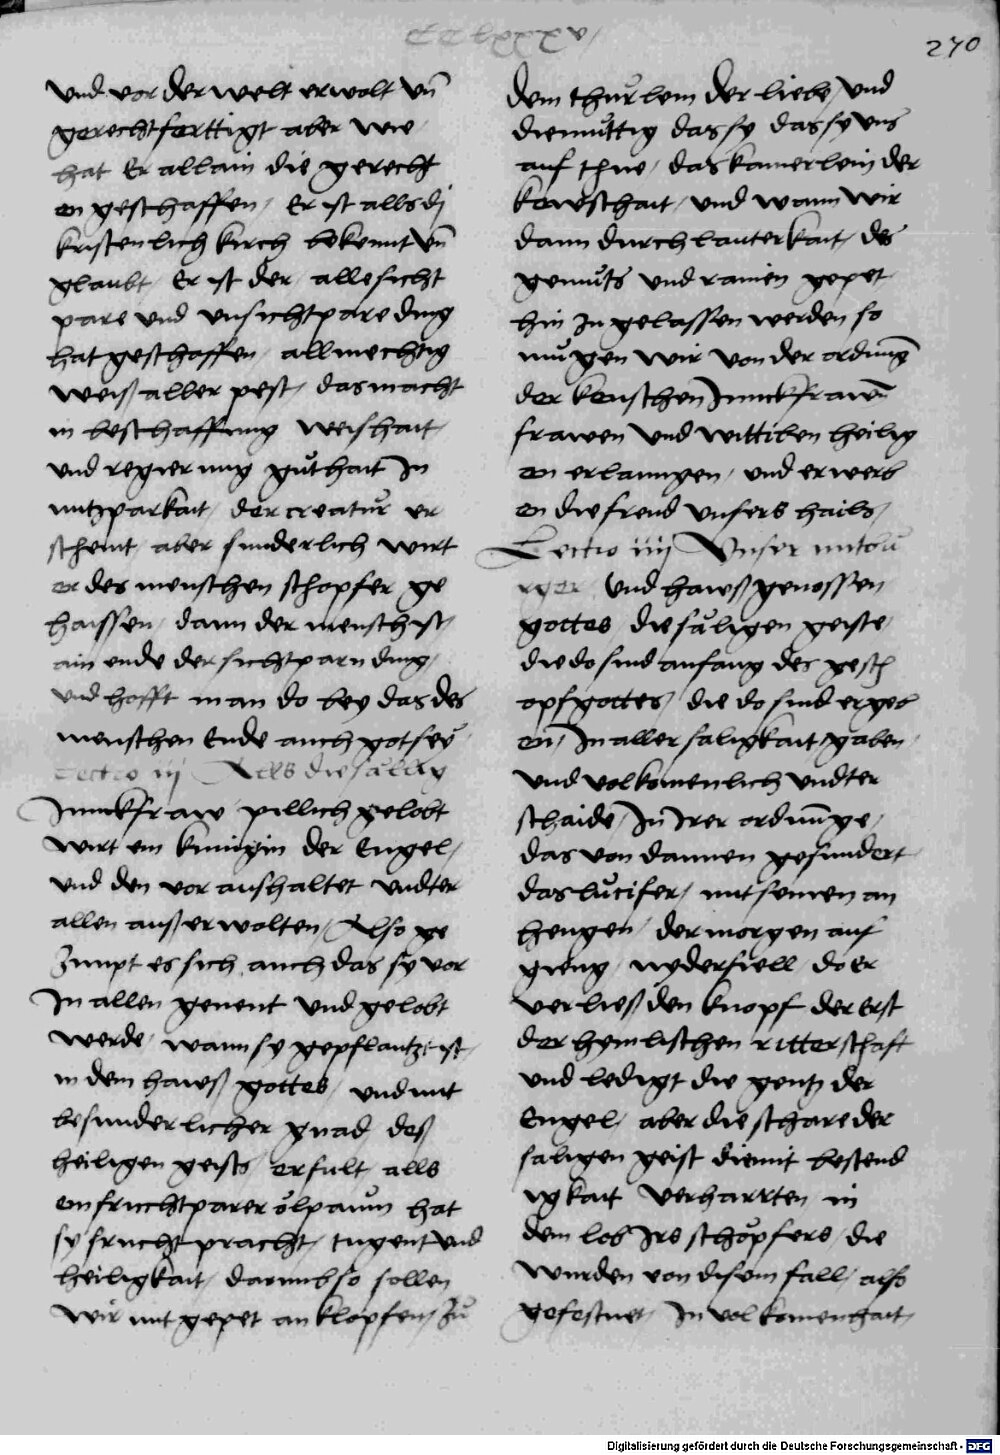 270
und vor der welt erwolt vn̄
gerechtferttigt aber wie
hat Er allain die gerecht
en geschaffen / Er ist alls dj
kristenlich kirch bekennt vn̄
glaubt / Er ist der / alle sicht
pare und unsichtpare ding
hat geschaffen / allmechtig
weiß aller pest / das macht
in beschaffung weishait /
und regierung gůthait In
nutzparkait / der creatůr er
scheint / aber sunderlich wirt
er des menschen schopfer ge
haissen / dann der mensch ist /
ain ende der sichtparn ding /
und hofft man do bey das des
menschen Ende auch got sey
Lectio iij Alls die sällig
Junckfraw pillich gelobt
wirt ein kunigin der Engel /
und den vor aushaltet undter
allen ausserwolten / Also ge
zimpt es sich auch das sy vor
In allen genent und gelobt
werde / wann sy gepflantzt ist /
in dem hawß gottes / und mit
besunderlicher gnad deß
heiligen geists erfult alls
ein fruchtparer ölpaum hat
sy frucht pracht / tugent und
heiligkait / darumb so sollen
wir mit gepet anklopfen / zů
dem thürlein der liebe / und
diemüttig das sy das sy uns
auf thue / das kamerlein der
kewschait / und wann wir
dann durch lauterkait / des
gemüts und rainen gepet
hin In gelassen werden so
mügen wir von der ordnung
der keuschen Junckfrawn̄
frawen und wittiben heilig
en erlanngen / und erwerb
en die freud unsers hails /
Lectio iiij Unser mitbu
rger und hawßgenossen
gottes / die säligen geiste /
die do sind anfang des gesch
opf gottes / die do sind ergeb
en / In aller saligkait gaben /
und volkomenlich undter
schaide / In Irer ordnunge /
das von dannen gesundert
das lucifer / mit seinen an
hengen / der morgen auf
gieng / nyderfiell / do er
verließ den knopf der Erst
der hymlischen ritterschaft
und ledigt die gentz der
Engel / aber die schare der
saligen geist die mit bestend
igkait verharrten in
dem lob Irs schöpfers / die
wurden von disem fall / also
gefestnet / In volkomenhait /
Digitalisierung gefördert durch die Deutsche Forschungsgemeinschaft - DFG